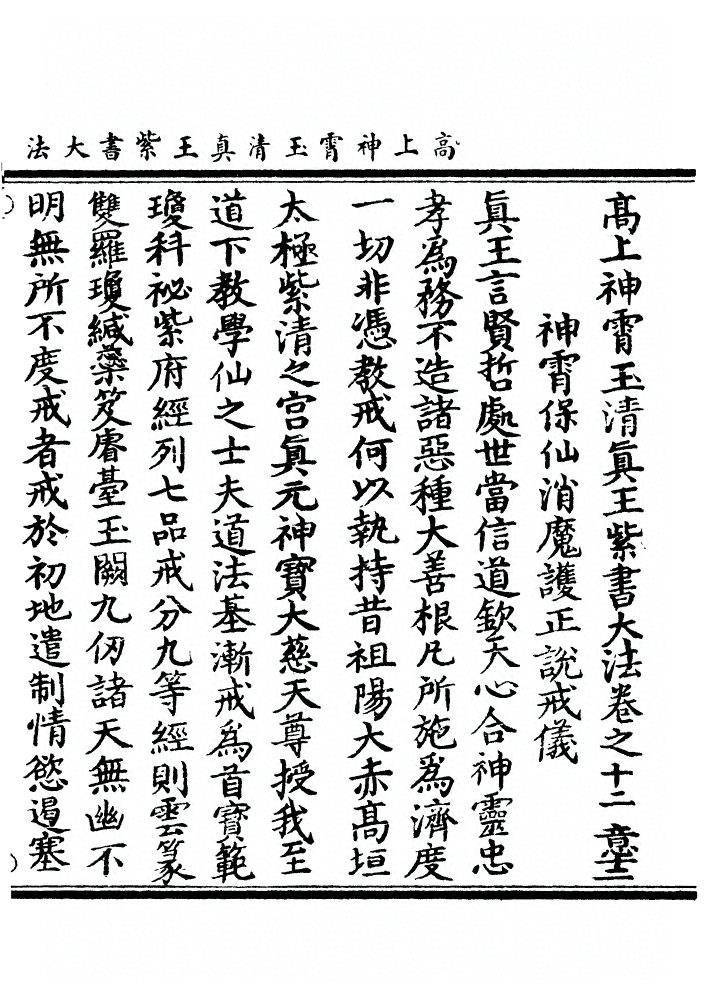 高上神霄玉清真王紫書大法
高上神霄玉清眞王紫書大法卷之十二 意士二
神霄保仙消魔護正說戒儀
眞王言賢哲處世當信道欽天心合神靈忠
孝為務不造諸惡種大善根凡所施為濟度
一切非憑教戒何以執持昔祖陽大赤高垣
太極紫清之宮眞元神寶大慈天尊授我至
道下教學仙之士夫道法基漸戒為首寶範
瓊科祕紫府經列七品戒分九等經則雲篆
雙羅瓊緘蘂笈膚臺玉闕九仞諸天無幽不
明無所不度戒者戒於初地遣制情慾遏塞